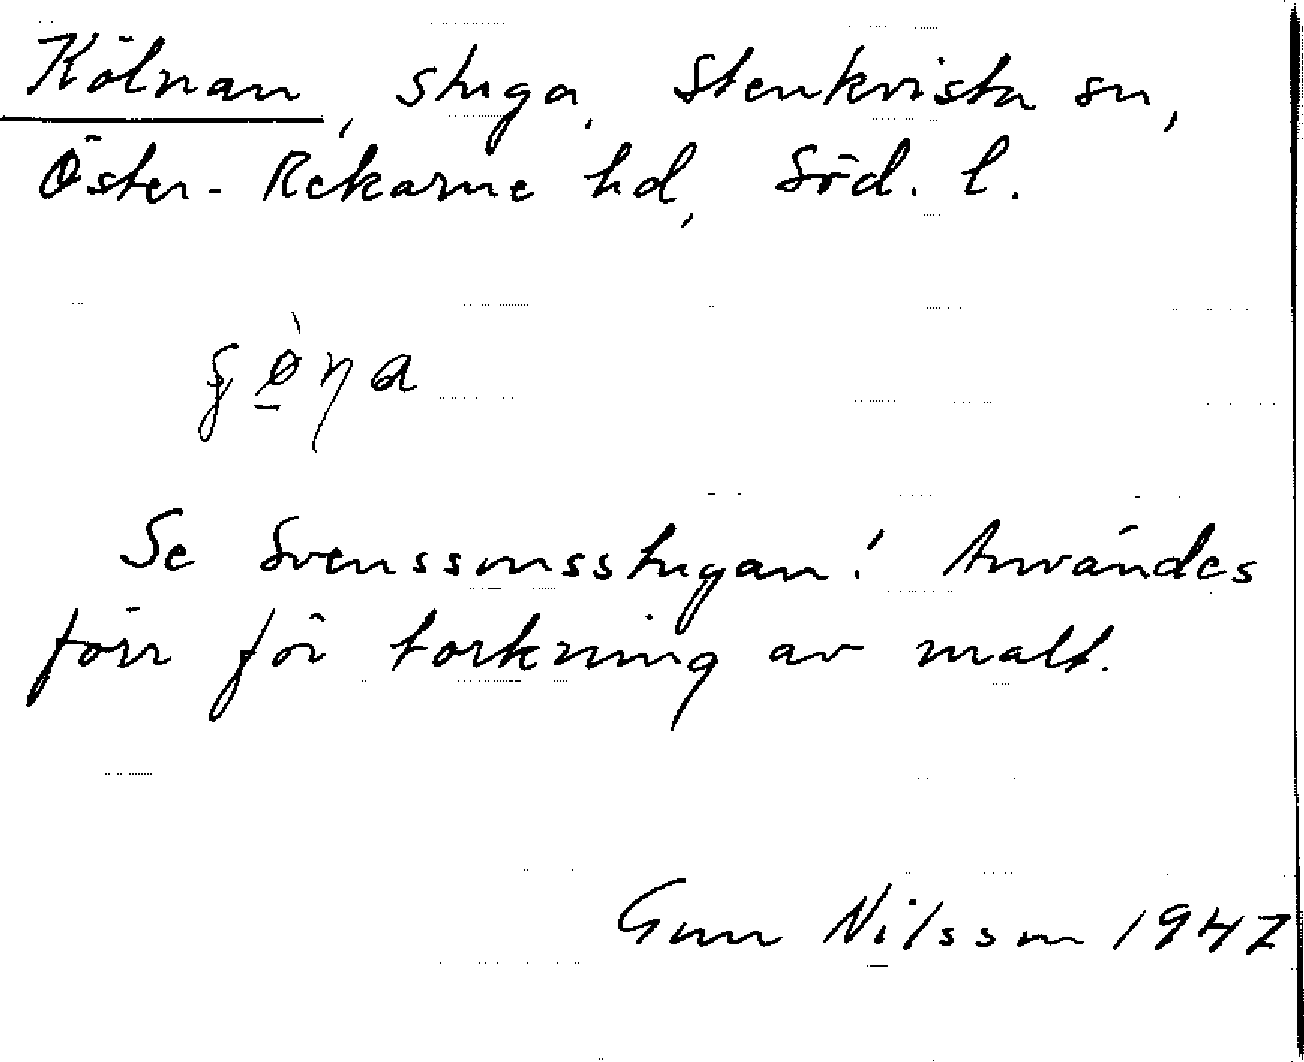 Kölnan, stuga, Stenkvista sn,
Öster-Rekarne hd, Söd. l.
Se Svenssonsstugan! Användes
förr för torkning av malt.
Gun Nilsson 1947